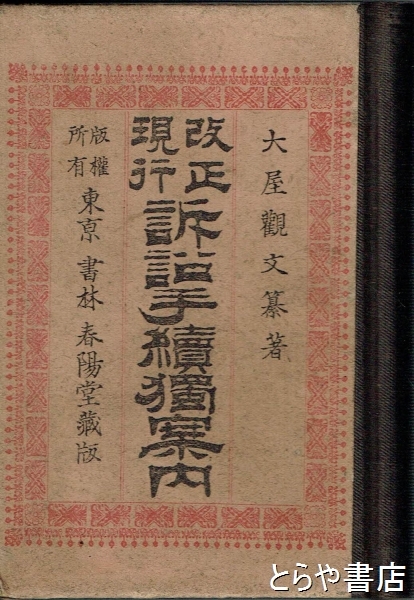 大屋觀文纂著
改正
現行
訴訟手續獨案內
版權
所有
東京 書林 春陽堂藏版
とらや書店